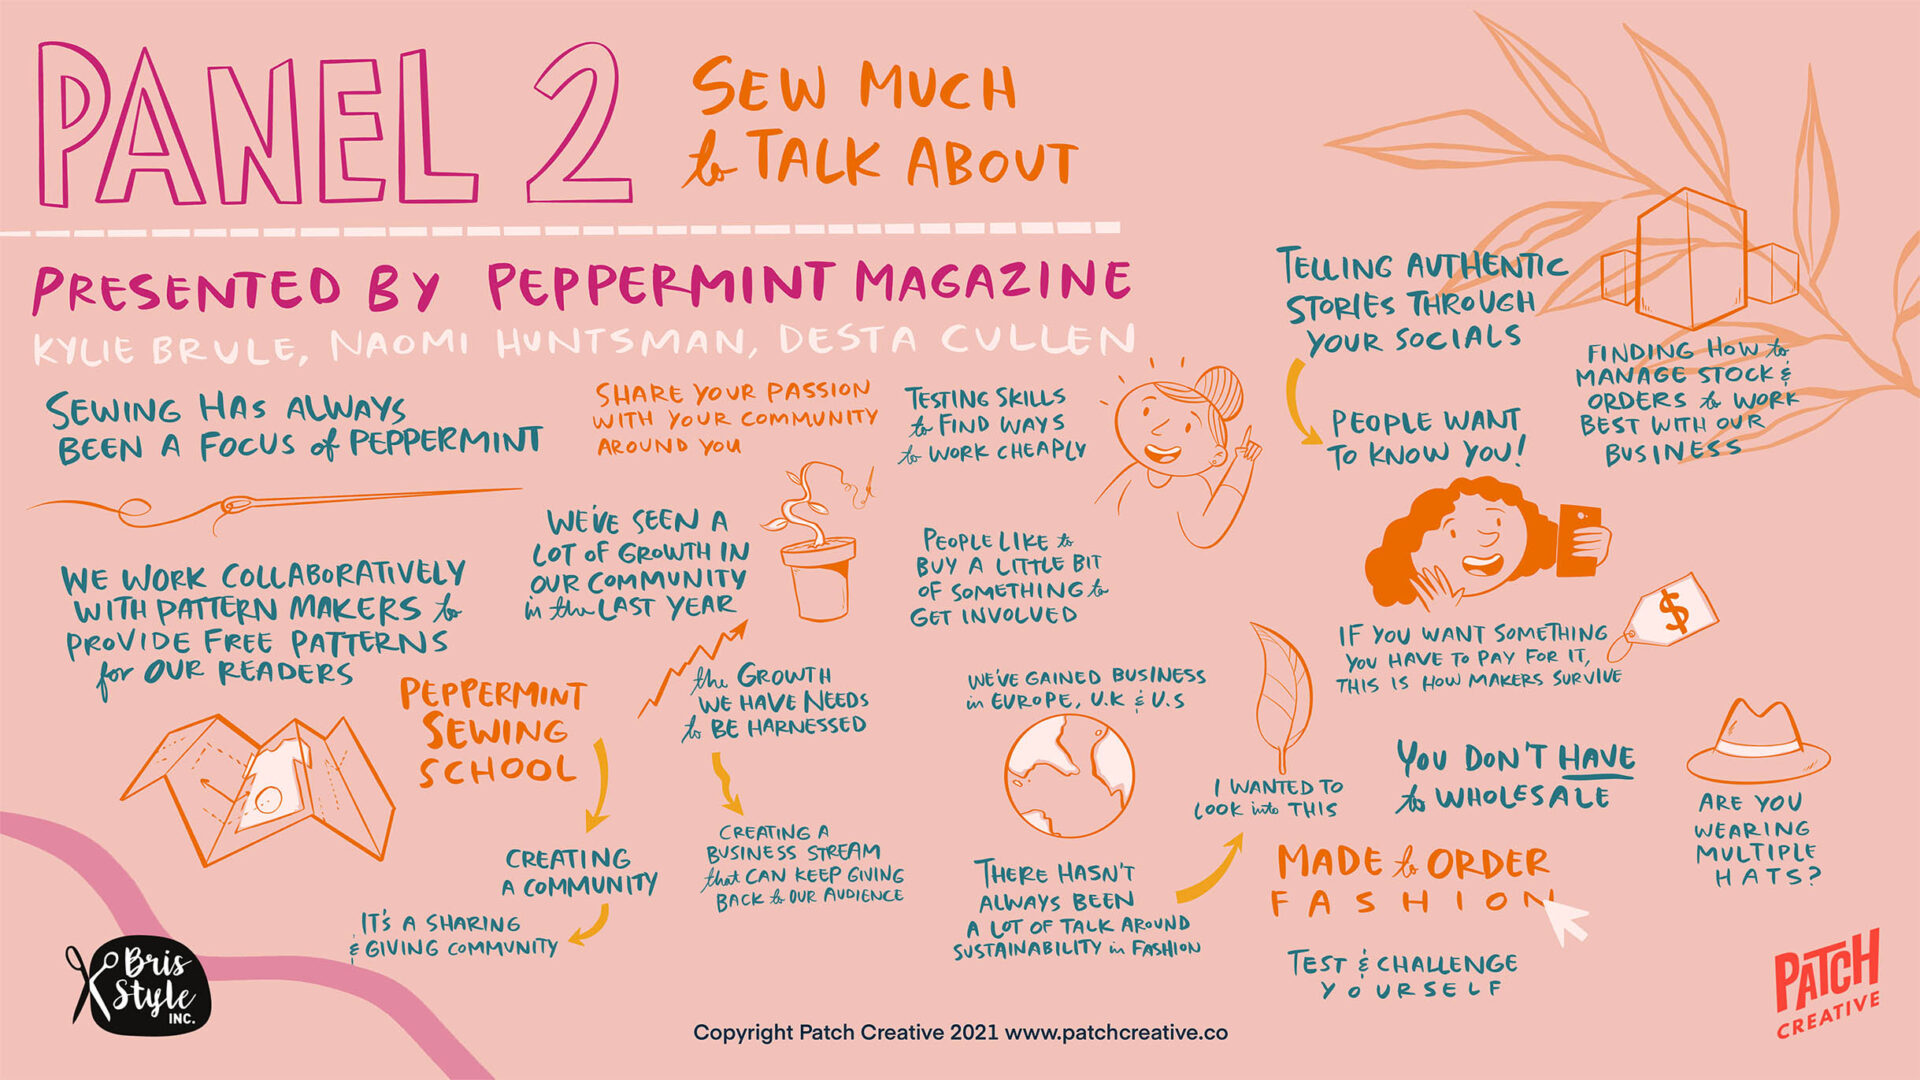 PANEL 2
SEW MUCH
to TALK ABOUT
PRESENTED BY PEPPERMINT MAGAZINE
KYLIE BRULE, NAOMI HUNTSMAN, DESTA CULLEN
SEWING HAS ALWAYS
BEEN A FOCUS of PEPPERMINT
WE WORK COLLABORATIVELY
WITH PATTERN MAKERS to
PROVIDE FREE PATTERNS
for OUR READERS
PEPPERMINT
SEWING
SCHOOL
CREATING
A COMMUNITY
IT'S A SHARING
& GIVING COMMUNITY
SHARE YOUR PASSION
WITH YOUR COMMUNITY
AROUND YOU
WE'VE SEEN A
LOT OF GROWTH IN
OUR COMMUNITY
in the LAST YEAR
the GROWTH
WE HAVE NEEDS
to BE HARNESSED
CREATING A
BUSINESS STREAM
that CAN KEEP GIVING
BACK to OUR AUDIENCE
TESTING SKILLS
to FIND WAYS
to WORK CHEAPLY
PEOPLE LIKE to
BUY A LITTLE BIT
OF SOMETHING to
GET INVOLVED
WE'VE GAINED BUSINESS
in EUROPE, U.K & U.S
THERE HASN'T
ALWAYS BEEN
A LOT OF TALK AROUND
SUSTAINABILITY in FASHION
I WANTED TO
LOOK into THIS
TELLING AUTHENTIC
STORIES THROUGH
YOUR SOCIALS
PEOPLE WANT
TO KNOW YOU!
FINDING HOW to
MANAGE STOCK &
ORDERS to WORK
BEST WITH OUR
BUSINESS
IF YOU WANT SOMETHING
YOU HAVE TO PAY FOR IT,
THIS IS HOW MAKERS SURVIVE
$
YOU DON'T HAVE
to WHOLESALE
MADE to ORDER
FASHION
TEST & CHALLENGE
YOURSELF
ARE YOU
WEARING
MULTIPLE
HATS?
Bris
Style
INC.
Copyright Patch Creative 2021 www.patchcreative.co
PATCH
CREATIVE